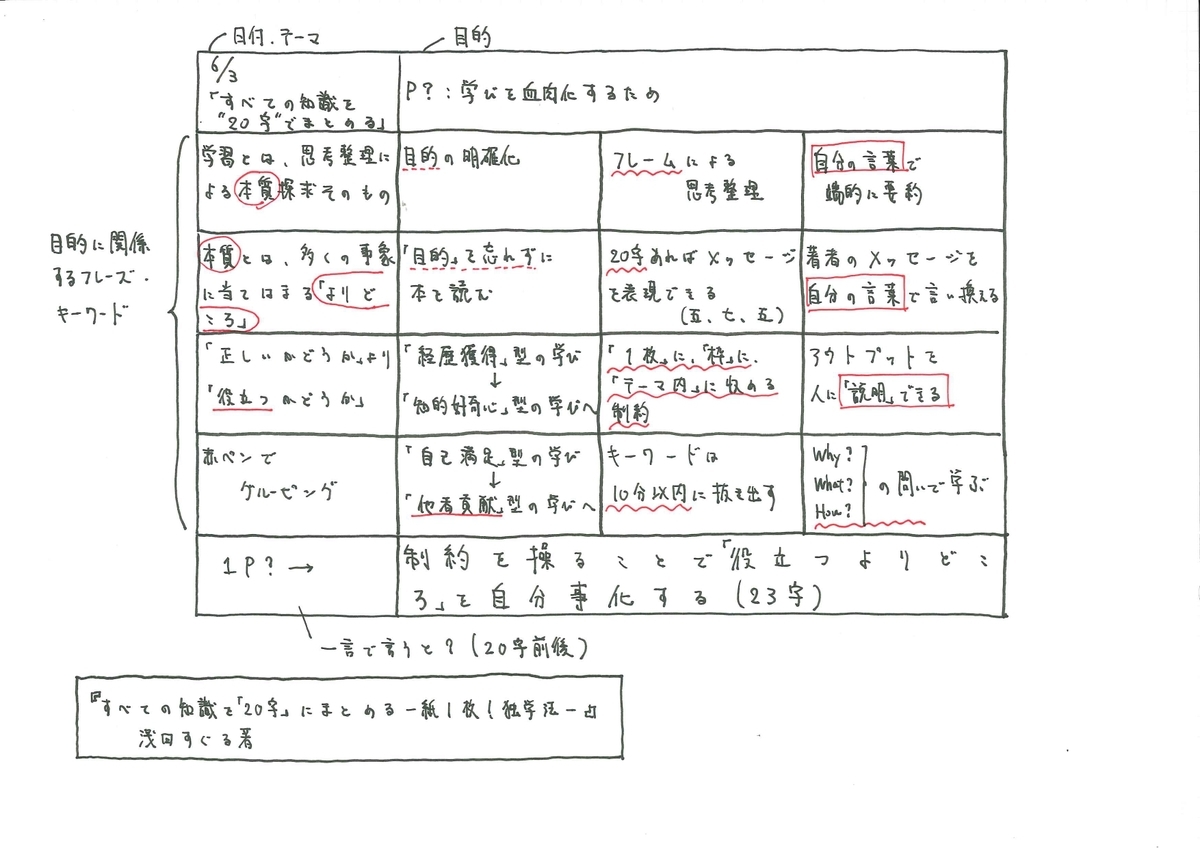 日付.テーマ
目的
6/3
「すべての知識を
"20字"でまとめる」
P?:学びを血肉化するため
目的に関係
するフレーズ.
キーワード
学習とは、思考整理に
よる本質探求そのもの
目的の明確化
フレームによる
思考整理
自分の言葉で
端的に要約
本質とは、多くの事象
に当てはまる「よりど
ころ」
「目的」を忘れずに
本を読む
20字あればメッセージ
を表現できる
(五、七、五)
著者のメッセージを
自分の言葉で言い換える
「正しいかどうか」より
「役立つかどうか」
「経歴獲得」型の学び
↓
「知的好奇心」型の学びへ
「1枚」に、「枠」に、
「テーマ内」に収める
制約
アウトプットを
人に「説明」できる
赤ペンで
グルーピング
「自己満足」型の学び
↓
「他者貢献」型の学びへ
キーワードは
10分以内に抜き出す
Why?
What?
How?
の問いで学ぶ
1P?→
制約を操ることで「役立つよりどこ
ろ」を自分事化する(23字)
一言で言うと?(20字前後)
『すべての知識を「20字」にまとめる-紙1枚!独学法-』
浅田すぐる著